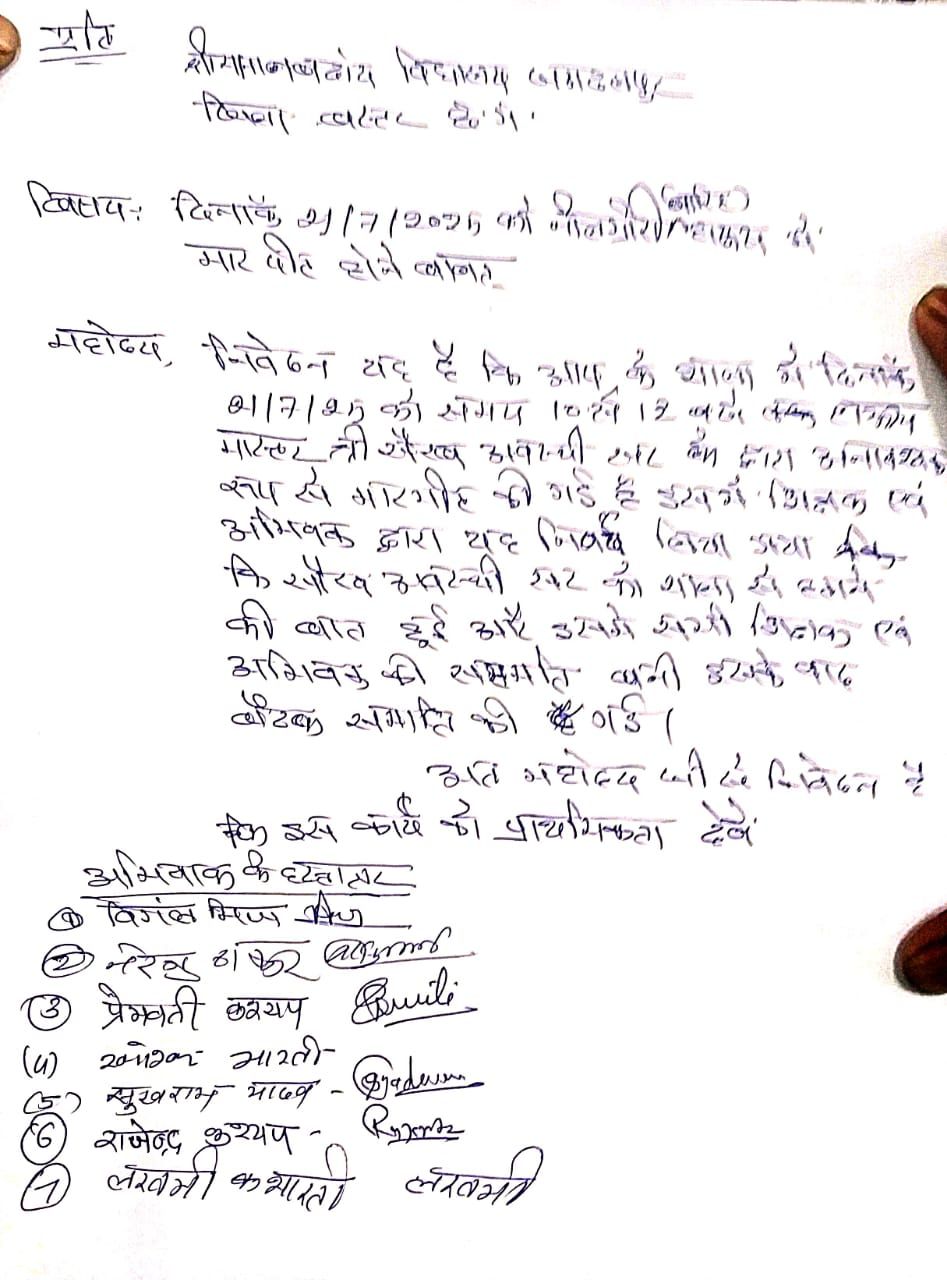 प्रति
विद्यालय जगदलपुर
जिला बस्तर छ.ग.
विषय: दिनाँक 21/7/2025 को से
मार पीट होने बाबत
महोदय, निवेदन यह है कि आप के शाला में दिनाँक
21/7/25 को समय 10 से 12 बजे
मास्टर श्री सौरभ अवस्थी सर के द्वारा अनावश्यक
रूप से मारपीट की गई है इसमें शिक्षक एवं
अभिवक द्वारा यह निर्णय लिया गया
कि सौरभ अवस्थी सर को शाला से हटाने
की बात हुई और इसमें सभी शिक्षक एवं
अभिवक की सहमति बनी इसके बाद
बैठक समाप्ति की गई।
अत महोदय जी से निवेदन है
कि इस कार्य को प्राथमिकता देवें
अभिवाक के हस्ताक्षर
①
② ठाकुर
③ प्रेमवती कश्यप
(4) भारती
(5) सुखराम यादव -
⑥ राजेन्द्र कश्यप -
⑦ लखमी भारती लखमी